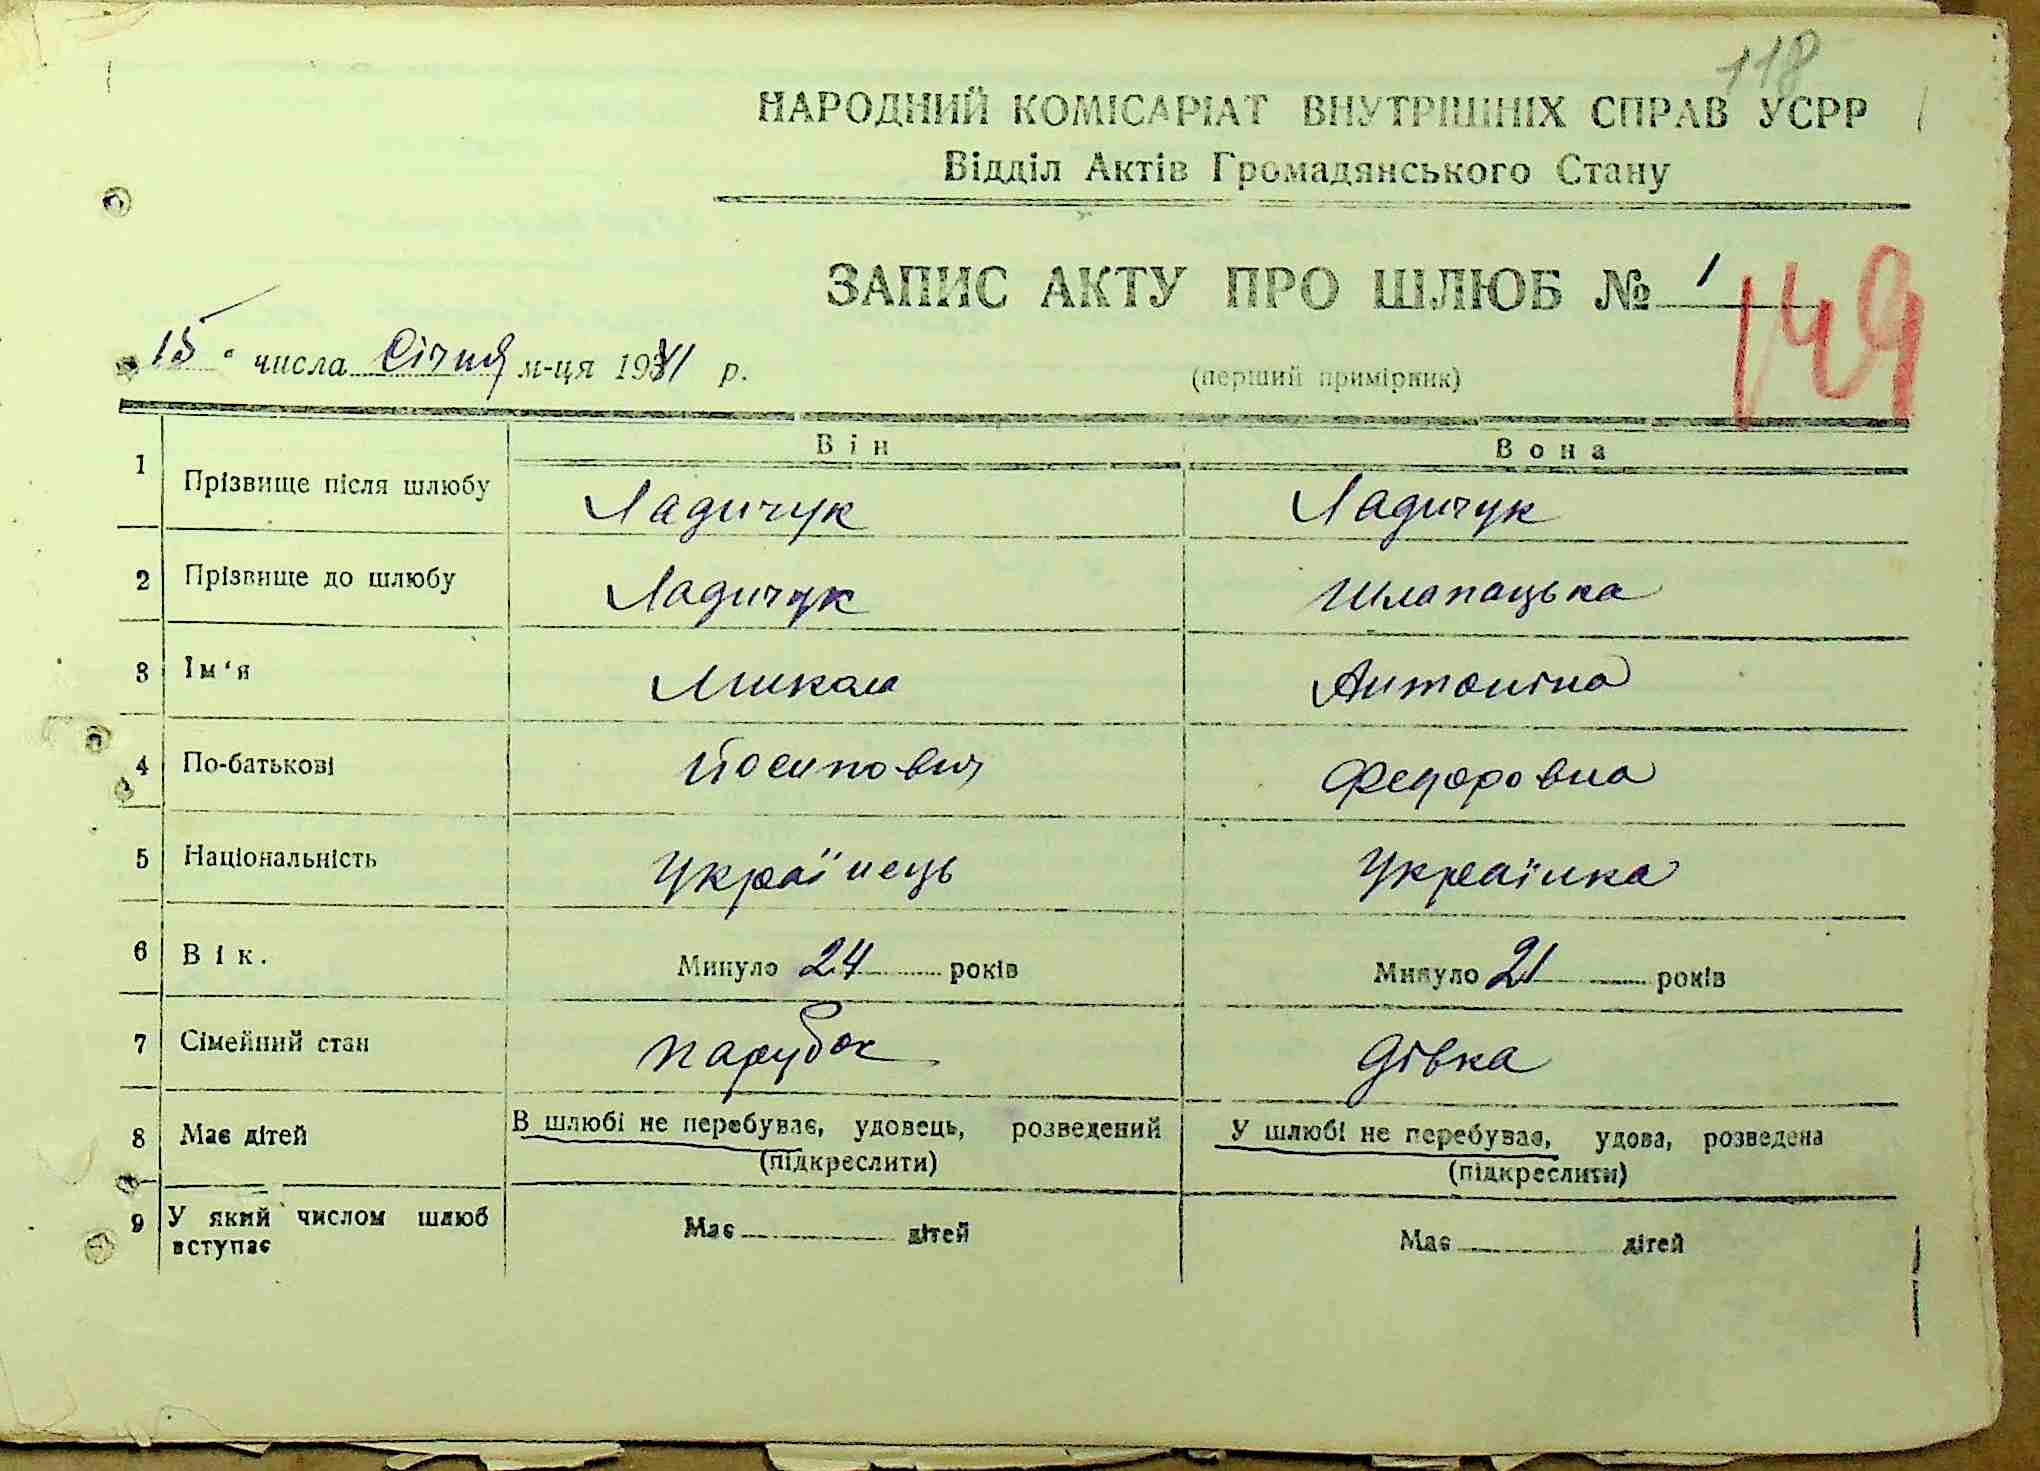 118
НАРОДНИЙ КОМІСАРІАТ ВНУТРІШНІХ СПРАВ УСРР
Відділ Актів Громадянського Стану
ЗАПИС АКТУ ПРО ШЛЮБ № 1
149
15 числа Січня м-ця 1941 р.
(перший примірник)
Він Вона
1 Прізвище після шлюбу Ладичук Ладичук
2 Прізвище до шлюбу Ладичук Шлапацька
3 Ім'я Микола Антоніна
4 По-батькові Йосипович Федоровна
5 Національність Українець Українка
6 Вік. Минуло 24 років Минуло 21 років
7 Сімейний стан парубок дівка
8 Має дітей В шлюбі не перебуває, удовець, розведений У шлюбі не перебуває, удова, розведена
(підкреслити) (підкреслити)
9 У який числом шлюб Має дітей Має дітей
вступає